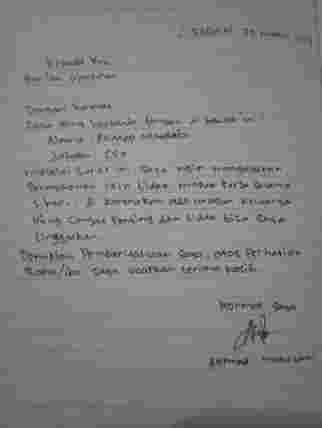 25 Maret
Kepada Yth
Dengan hormat
Saya yang bertanda tangan di bawah ini :
Nama : Ahmad
Jabatan :
melalui surat ini saya ingin mengajukan
permohonan izin tidak masuk kerja selama
1 hari. di karenakan ada urusan keluarga
yang sangat penting dan tidak bisa saya
tinggalkan.
Demikian pemberitahuan saya, atas perhatian
Bapak/ibu saya ucapkan terima kasih.
Hormat saya
Ahmad